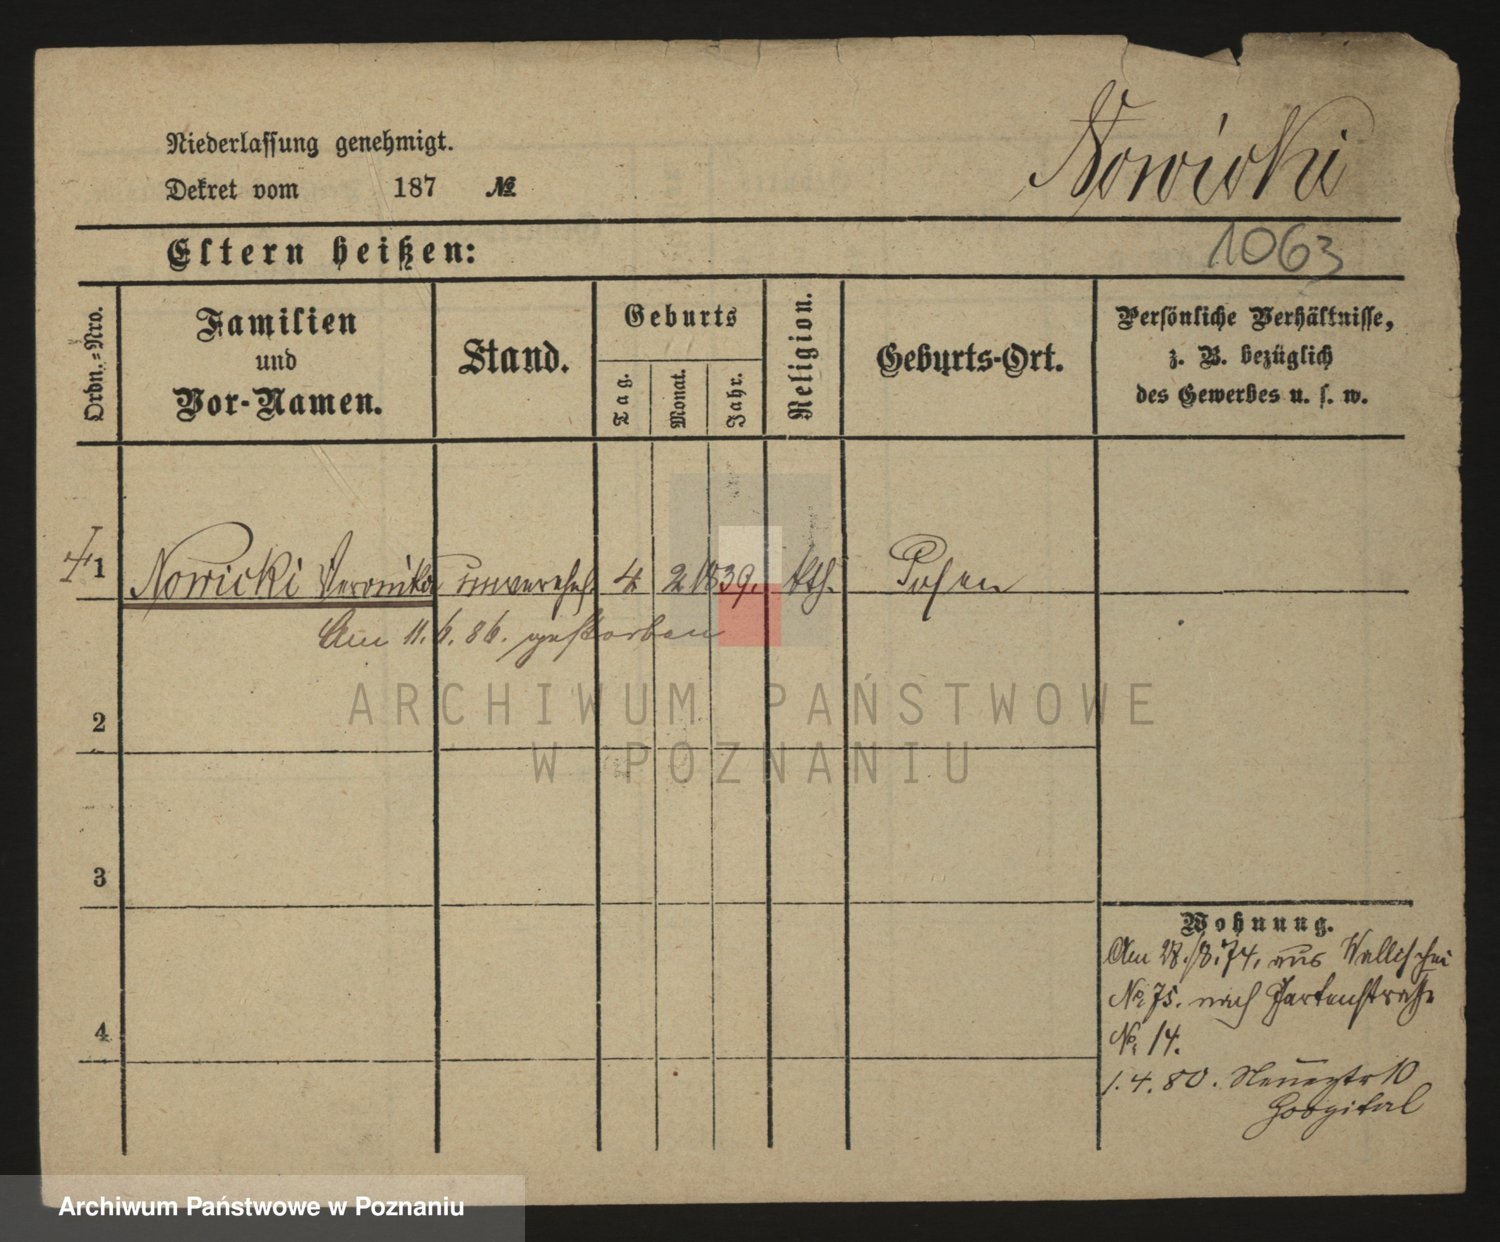 Niederlassung genehmigt.
Nowicki
Dekret vom 187 №
Eltern heißen:
1063
Ordn.-Nro.
Familien
und
Vor-Namen.
Stand.
Geburts
Tag.
Monat.
Jahr.
Religion.
Geburts-Ort.
Persönliche Verhältnisse,
z. B. bezüglich
des Gewerbes u. s. w.
1 Nowicki Veronika unverehel. 4 2 1839. kth. Posen
Am 11.6.86. gestorben
ARCHIWUM PAŃSTWOWE
W POZNANIU
2
3
4
Wohnung.
Am 28./8.74. aus Wallischei
No 75. nach Gartenstraße
No 14.
1.4.80. 10
Hospital
Archiwum Państwowe w Poznaniu